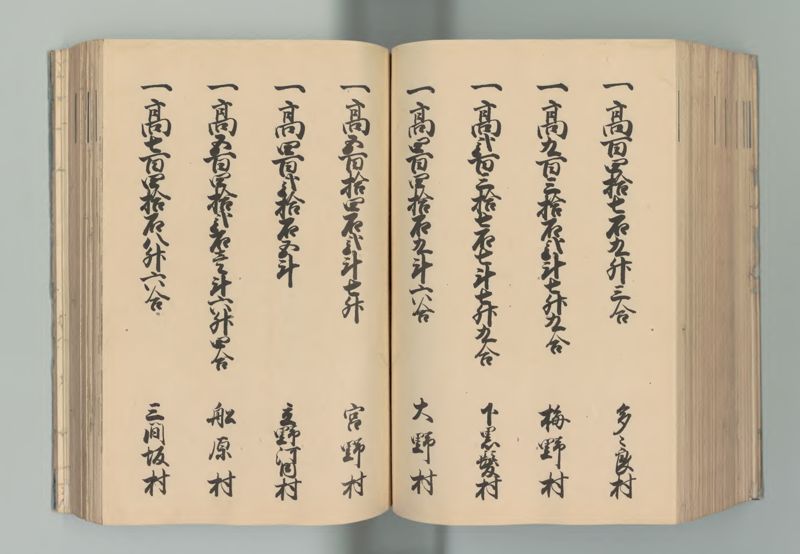 一高百四拾七石九升三合 多々良村
一高九百三拾石弐斗七升九合 梅野村
一高弐百三拾七石七斗七升九合 下黒髪村
一高四百四拾石九斗六合 大野村
一高五百拾四石弐斗七升 宮野村
一高四百弐拾石五斗 立野河内村
一高五百四拾弐石三斗六升四合 船原村
一高七百四拾石八升六合 三間坂村